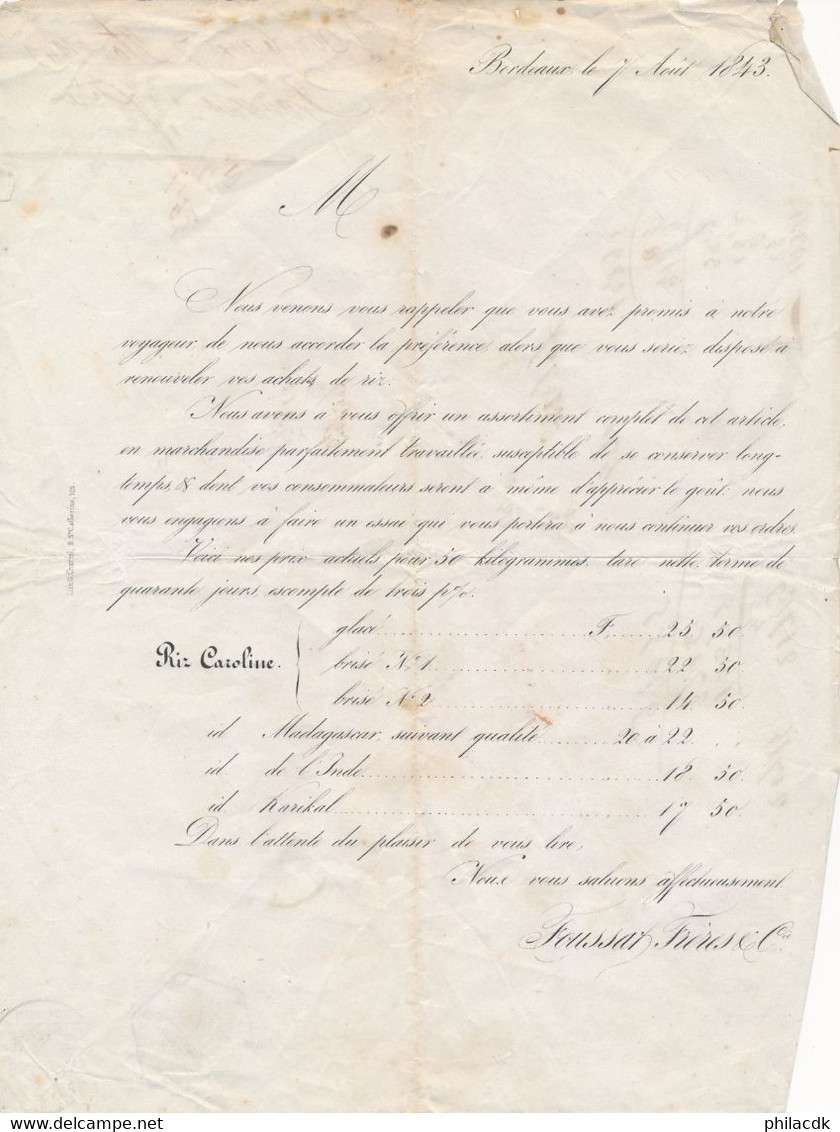 Bordeaux, le 7 Août 1843.
M
Nous venons vous rappeler que vous avez promis à notre
voyageur de nous accorder la préférence, alors que vous seriez disposé à
renouveler vos achats de riz.
Nous avons à vous offrir un assortiment complet de cet article,
en marchandise parfaitement travaillée, susceptible de se conserver long-
temps, & dont vos consommateurs seront à même d'apprécier le goût; nous
vous engageons à faire un essai qui vous portera à nous continuer vos ordres.
Voici nos prix actuels pour 50 kilogrammes, tare nette, terme de
quarante jours, escompte de trois p%.
Riz Caroline.
glacé F. 25 50
brisé N° 1 22 50
brisé N° 2 14 50
id Madagascar, suivant qualité 20 à 22 . .
id de l'Inde 18 50
id Karikal 17 50
Dans l'attente du plaisir de vous lire,
Nous vous saluons affectueusement
Foussat Frères & Cie
delcampe.net
philacdk